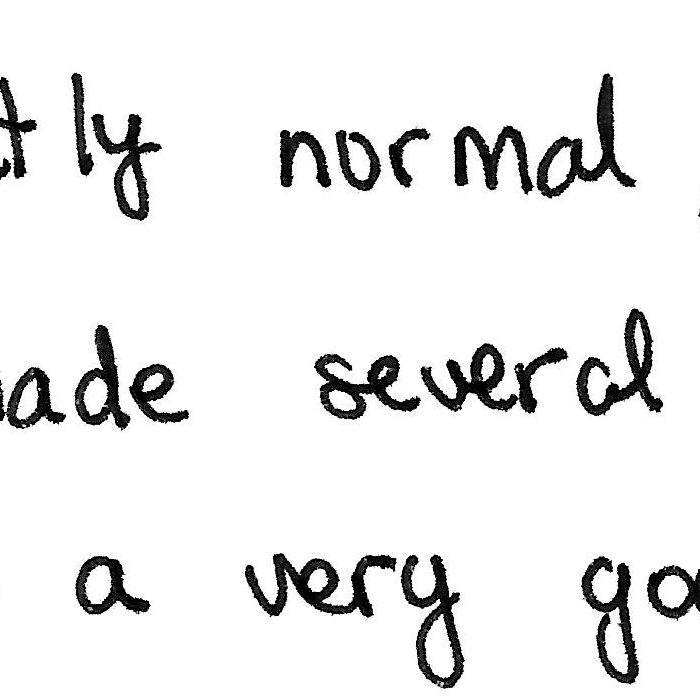 tly normal
ade several
a very go